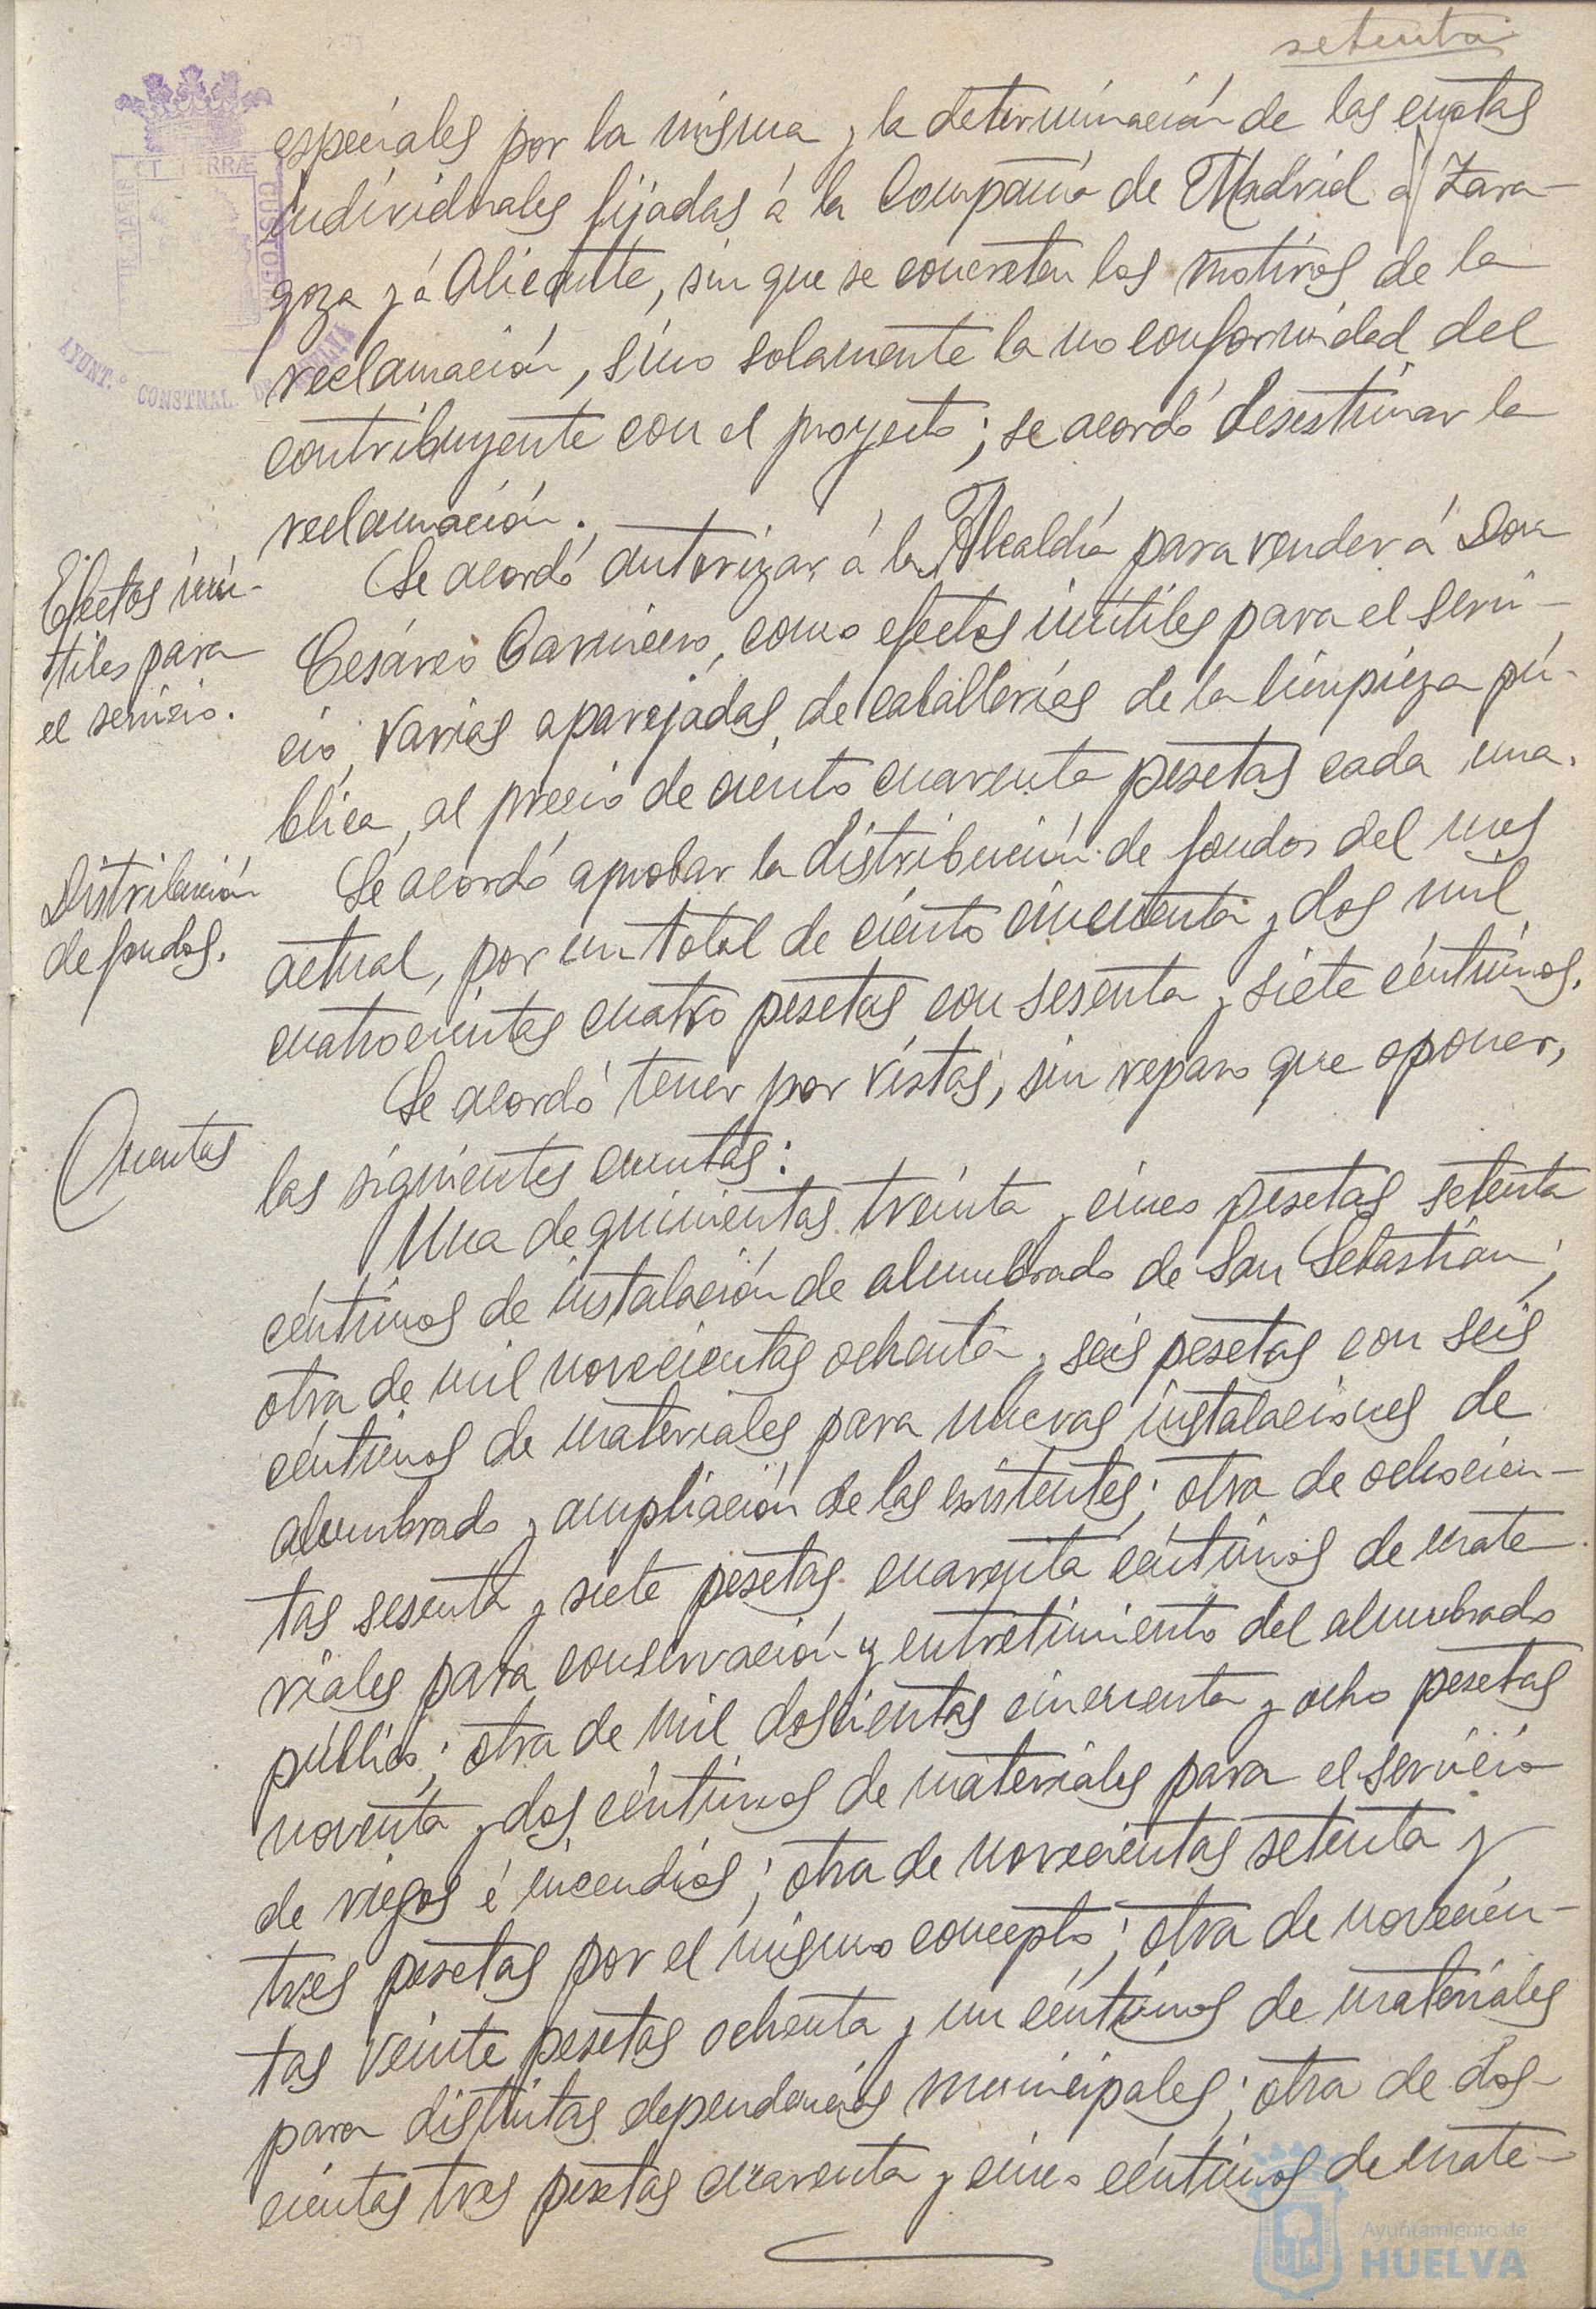 setenta
especiales por la misma y la determinación de las cuotas
individuales fijadas á la Compañía de Madrid á Zara-
goza y á Alicante, sin que se concreten los motivos de la
reclamación, sino solamente la no conformidad del
contribuyente con el proyecto; se acordó desestimar la
reclamación.
Efectos inú-
tiles para
el servicio.
Se acordó autorizar á la Alcaldía para vender á Don
Cesáreo Carnicero, como efectos inútiles para el servi-
cio, varias aparejadas de caballerías de la limpieza pú-
blica, al precio de ciento cuarenta pesetas cada una.
Distribución
de fondos.
Se acordó aprobar la distribución de fondos del mes
actual, por un total de ciento cincuenta y dos mil
cuatrocientas cuatro pesetas con sesenta y siete céntimos.
Cuentas
Se acordó tener por vistas, sin reparo que oponer,
las siguientes cuentas:
Una de quinientas treinta y cinco pesetas setenta
céntimos de instalación de alumbrado de San Sebastián;
otra de mil novecientas ochenta y seis pesetas con seis
céntimos de materiales para nuevas instalaciones de
alumbrado y ampliación de las existentes; otra de ochocien-
tas sesenta y siete pesetas cuarenta céntimos de mate-
riales para conservación y entretimiento del alumbrado
público; otra de mil doscientas cincuenta y ocho pesetas
noventa y dos céntimos de materiales para el servicio
de riegos é incendios; otra de novecientas setenta y
tres pesetas por el mismo concepto; otra de novecien-
tas veinte pesetas ochenta y un céntimos de materiales
para distintas dependencias municipales; otra de dos-
cientas tres pesetas cuarenta y cinco céntimos de mate-
AYUNT.º CONSTNAL. DE HUELVA
Ayuntamiento de
HUELVA